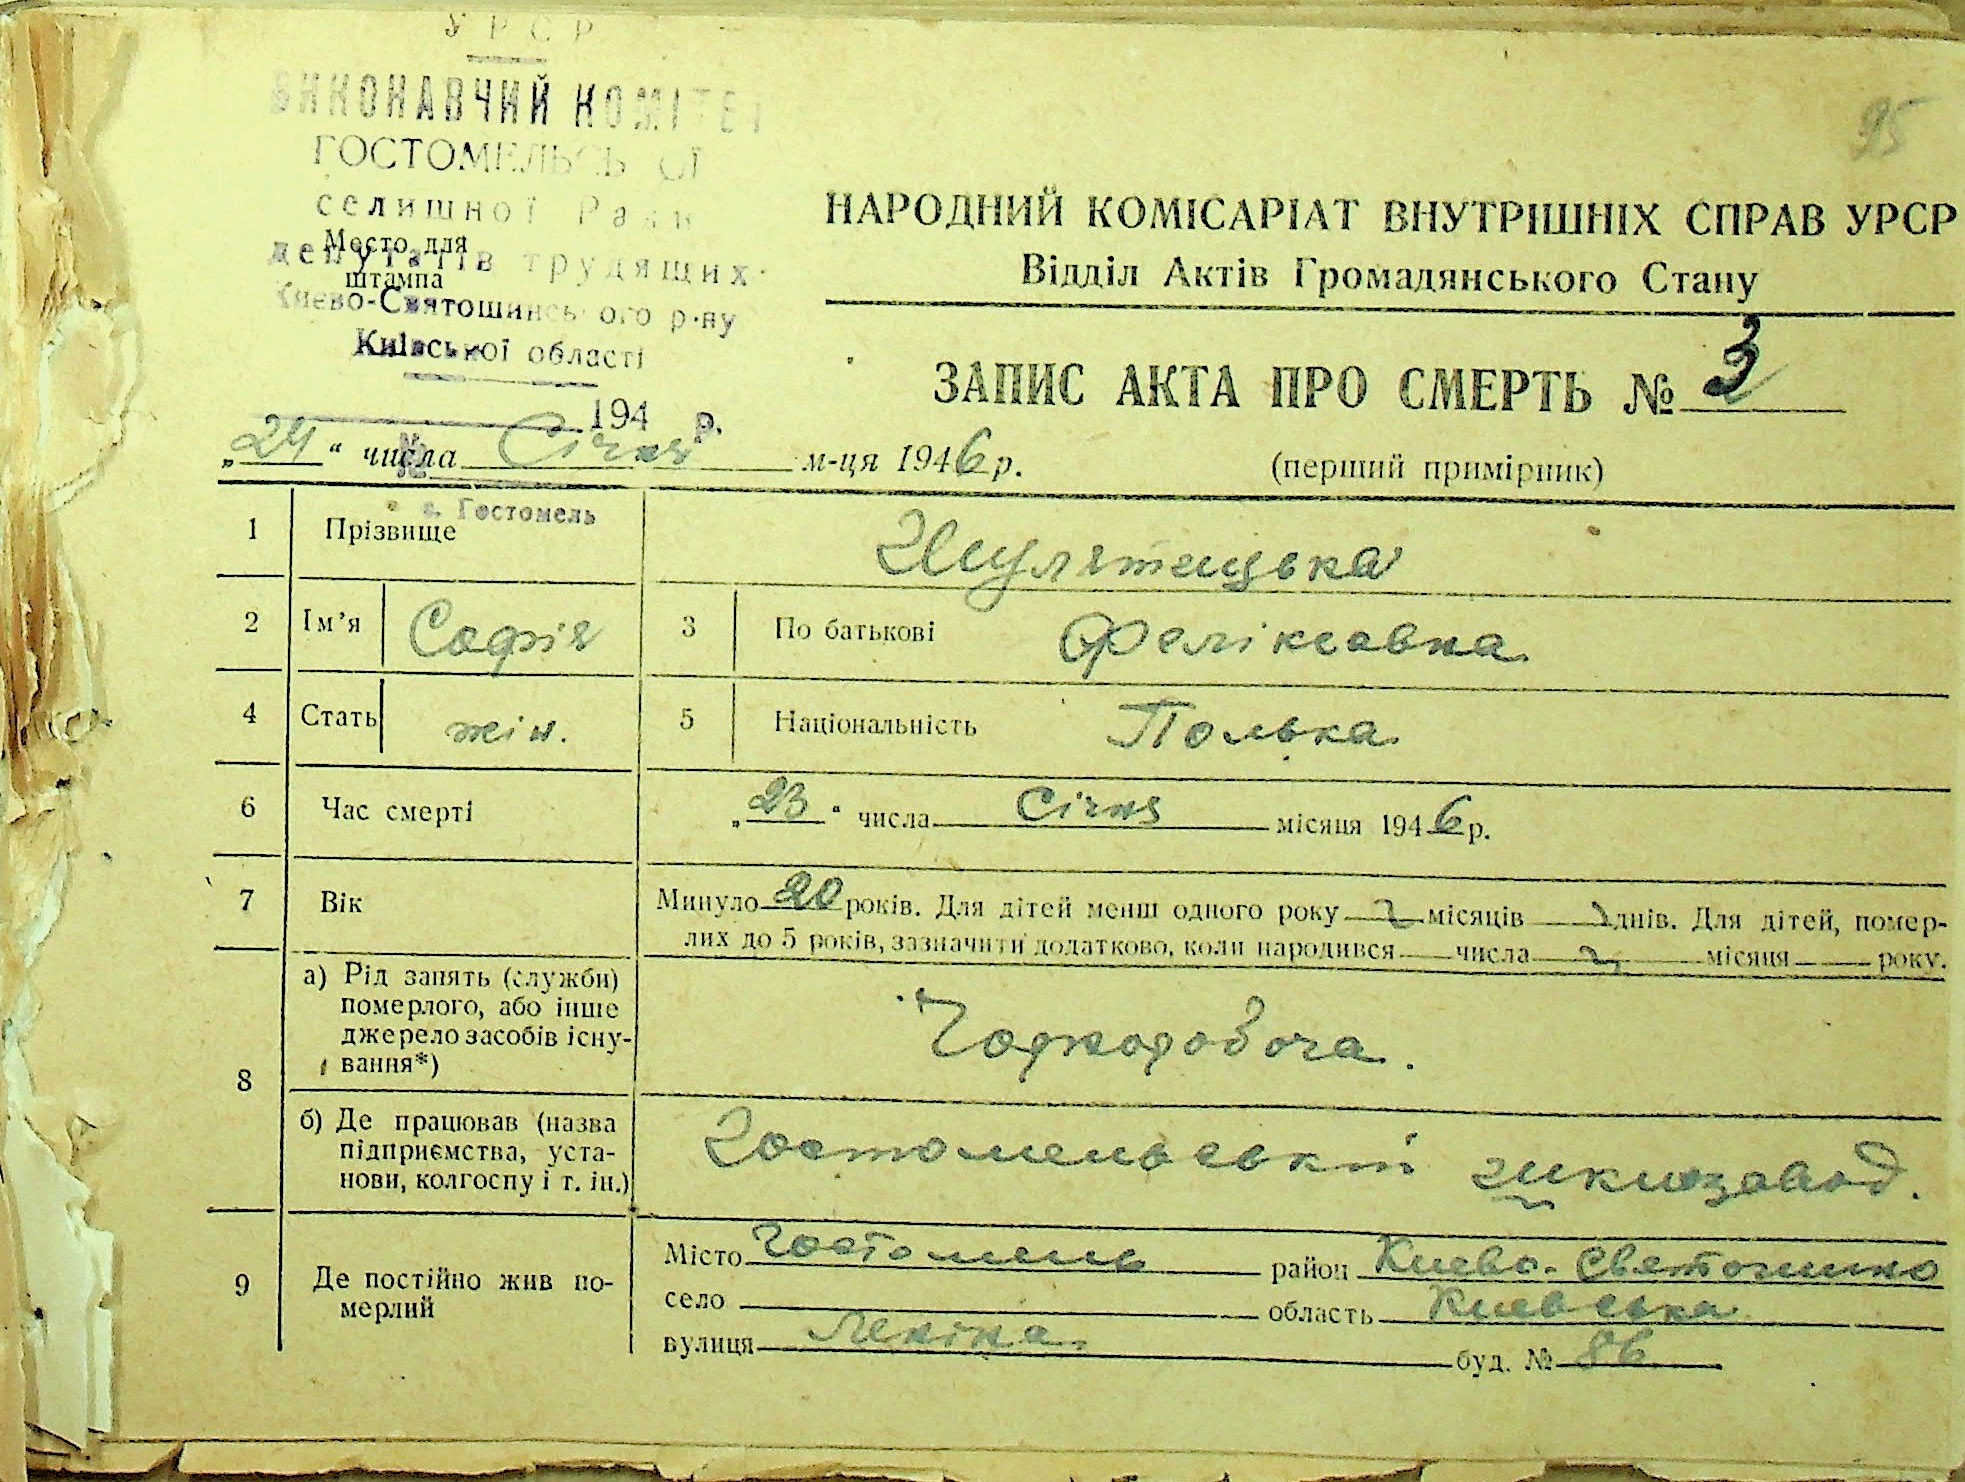 УРСР
ВИКОНАВЧИЙ КОМІТЕТ
ГОСТОМЕЛЬСЬКОЇ
селишної Ради
депутатів трудящих
Києво-Святошинського р-ну
Київської області
Место для
штампа
194 р.
№
с. Гостомель
95
НАРОДНИЙ КОМІСАРІАТ ВНУТРІШНІХ СПРАВ УРСР
Відділ Актів Громадянського Стану
ЗАПИС АКТА ПРО СМЕРТЬ № 3
„24“ числа Січня м-ця 1946 р. (перший примірник)
1 Прізвище
2 Ім'я Софія 3 По батькові Феліксовна
4 Стать жін. 5 Національність Полька
6 Час смерті „23“ числа Січня місяця 1946 р.
7 Вік Минуло 20 років. Для дітей менш одного року місяців днів. Для дітей, помер-
лих до 5 років, зазначити додатково, коли народився числа місяця року.
8 а) Рід занять (служби)
померлого, або інше
джерело засобів існу-
вання*)
Чорноробоча.
б) Де працював (назва
підприємства, уста-
нови, колгоспу і т. ін.)
Гостомельській
9 Де постійно жив по-
мерлий
Місто Гостомель район Киево-Святошино
село область Киевська
вулиця Леніна. буд. № 86